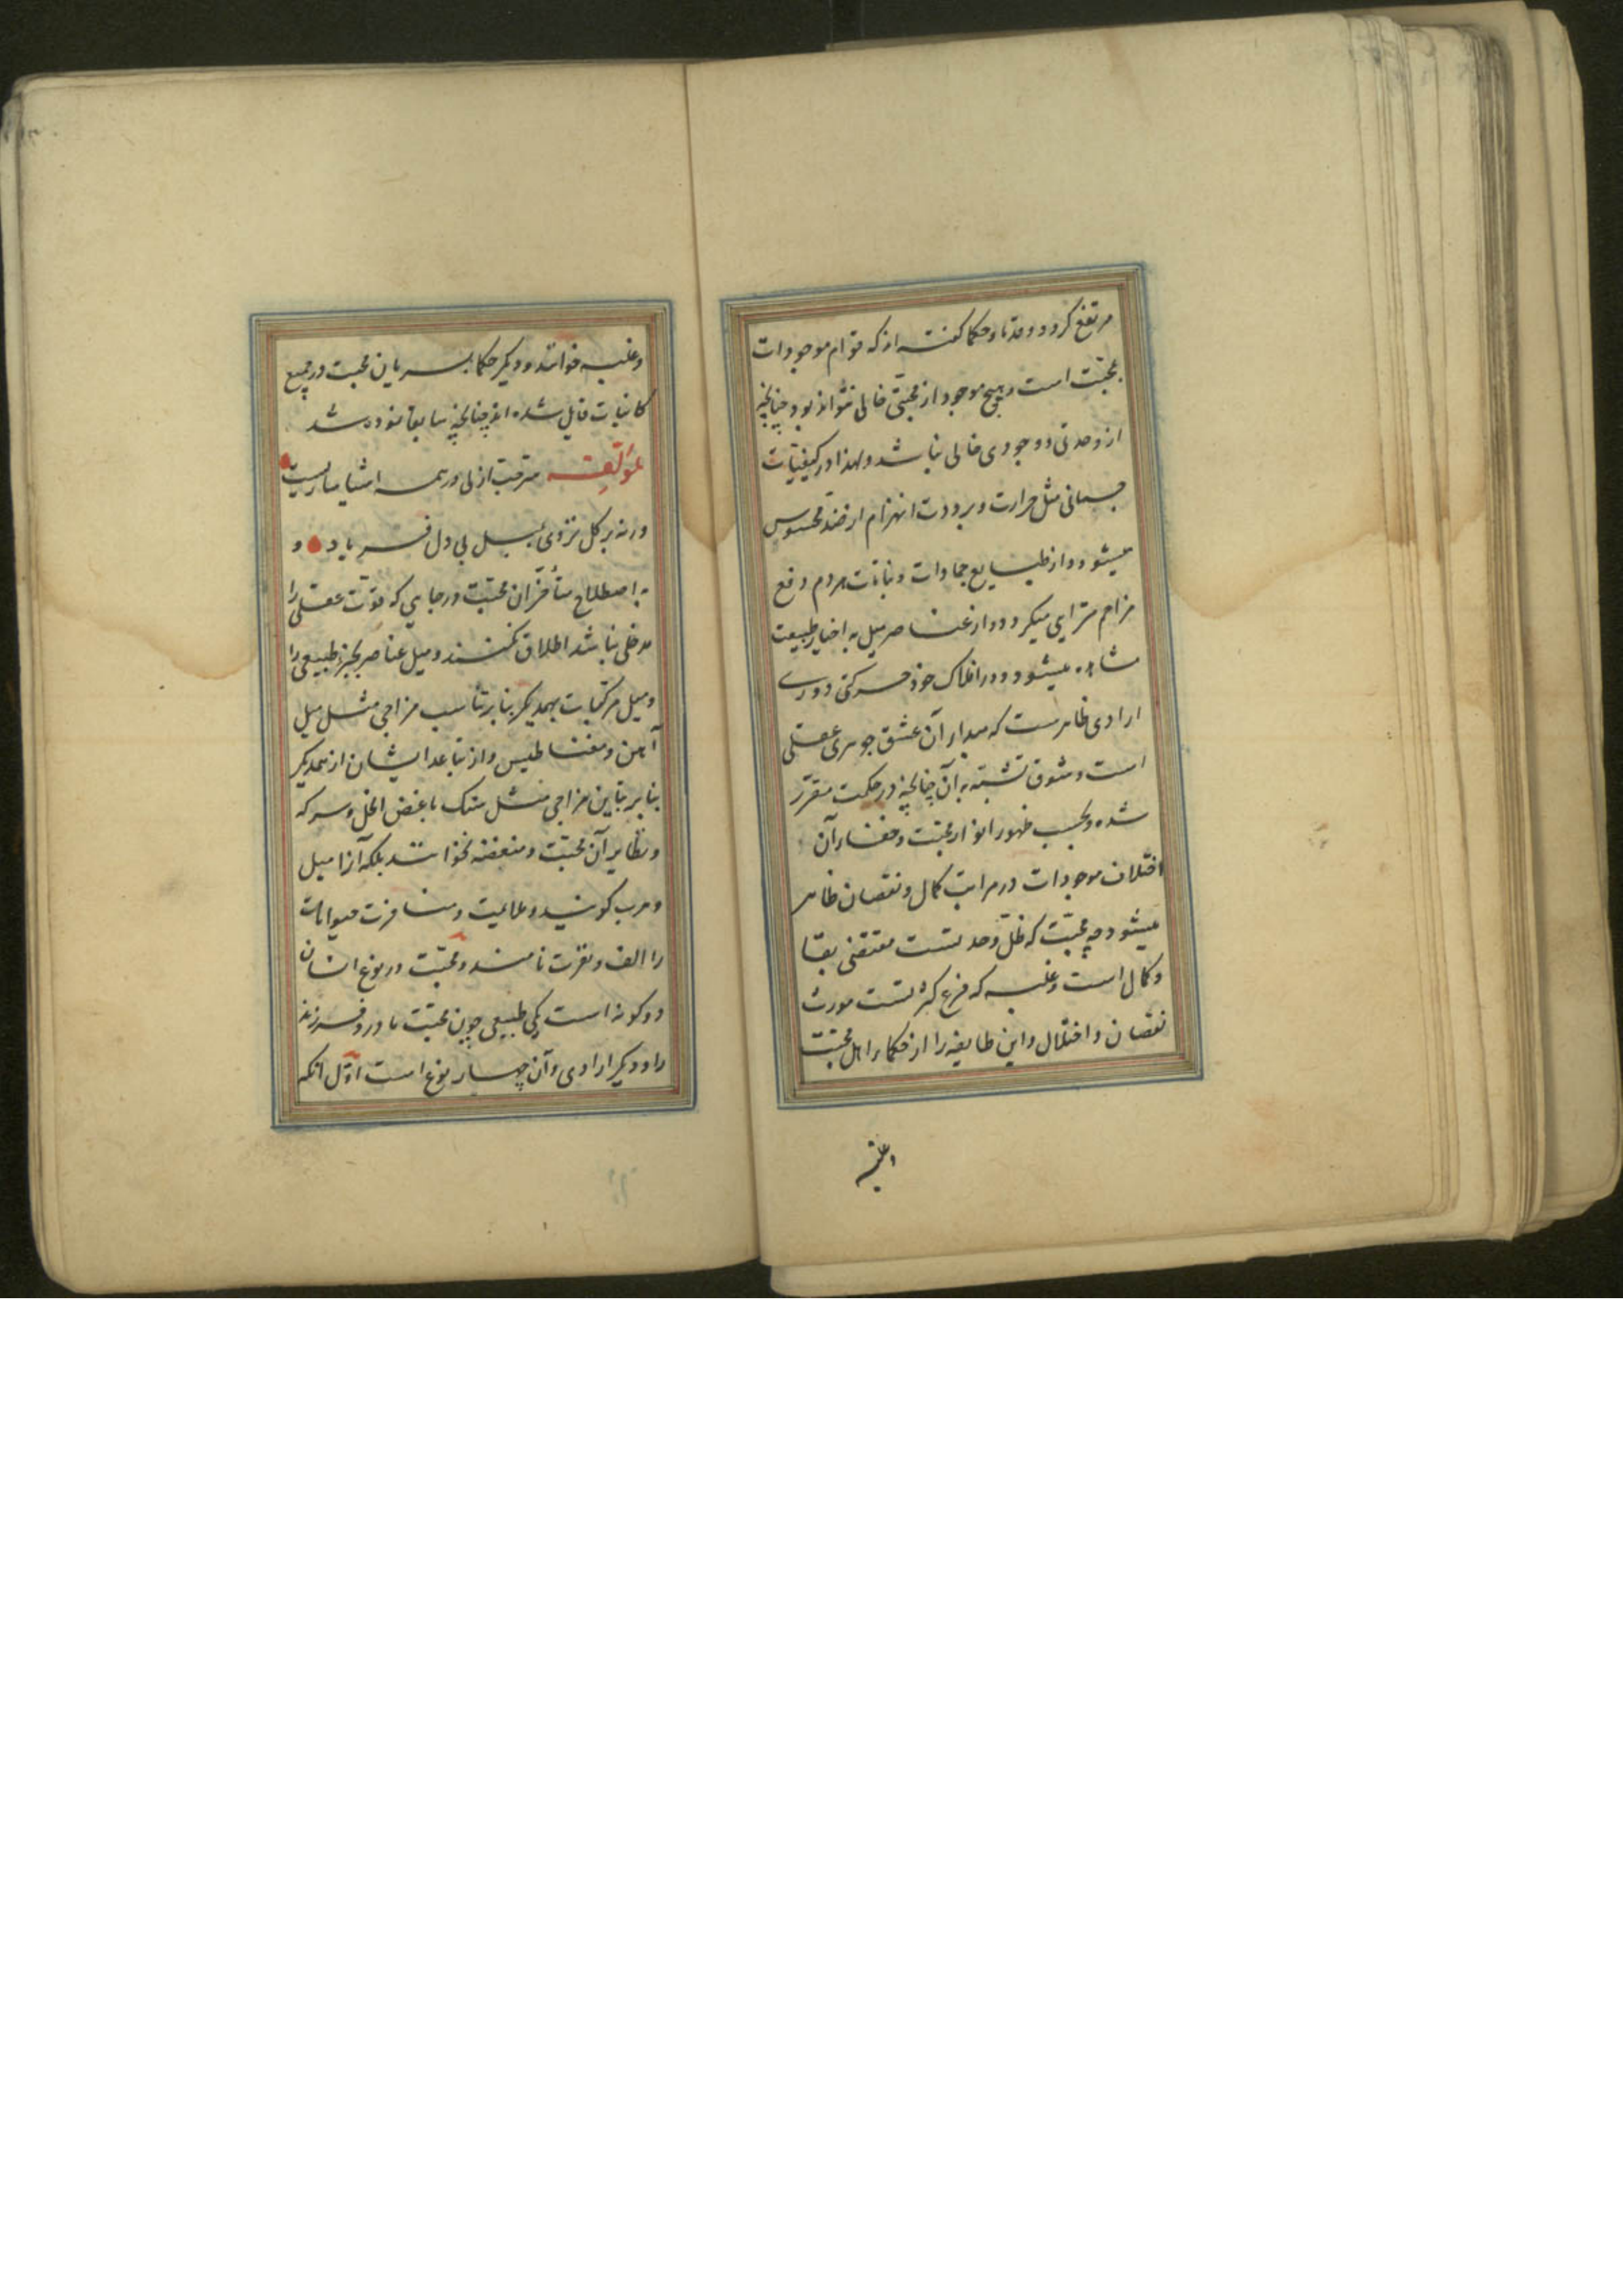 مرتفع کردد و قدماء حکما کفته‌اند که قوام موجودات
بمحبّت است و هیچ موجود از محبّتی خالی نتواند بود چنانچه
از وحدتی و وجودی خالی نباشد و لهذا در کیفیّات
جسمانی مثل حرارت و برودت انهزام از ضد محسوس
میشود و از طبایع جمادات و نباتات هر دم دفع
مزاحم مترایی میکردد و از عناصر میل به احیاز طبیعت
مشاهده میشود و در افلاک خود حرکتی دوری
ارادی ظاهرست که مبداء آن عشق جوهری عقلی
است و شوق تشبّه به آن چنانچه در حکمت مقرّر
شده و بحسب ظهور انوار محبّت و خفاء آن
اختلاف موجودات در مراتب کمال و نقصان ظاهر
میشود چه محبّت که ظلّ وحدتست مقتضی بقا
و کمال است و غلبه که فرع کثرتست مورث
نقصان و اختلال و این طایفه را از حکما اهل محبّت
و غلبه
و غلبه خوانند و دیکر حکما بسریان محبت در جمیع
کائنات قایل شده‌اند چنانچه سابقا نموده شد
لمؤلّفه سرّ حبّ ازلی در همه اشیا ساریست
ورنه بر کل نزدی بلبل بی دل فریاد و
به اصطلاح متأخّران محبّت در جایی که قوّت عقلی را
مدخلی نباشد اطلاق نکنند و میل عناصر بحیّز طبیعی را
و میل مرکّبات بهمدیکر بنا بر تناسب مزاجی مثل میل
آهن و مغناطیس و از تباعد ایشان از همدیکر
بنا بر تباین مزاجی مثل سنک باغض الخل و سرکه
و نظایر آن محبّت و مبغضه نخوانند بلکه آنرا میل
و هرب کویند و ملایمت و منافرت حیوانات
را الف و نفرت نامند و محبّت در نوع انسان
دو کونه است یکی طبیعی چون محبّت مادر و فرزند
را و دیکر ارادی و آن چهار نوع است اوّل آنکه